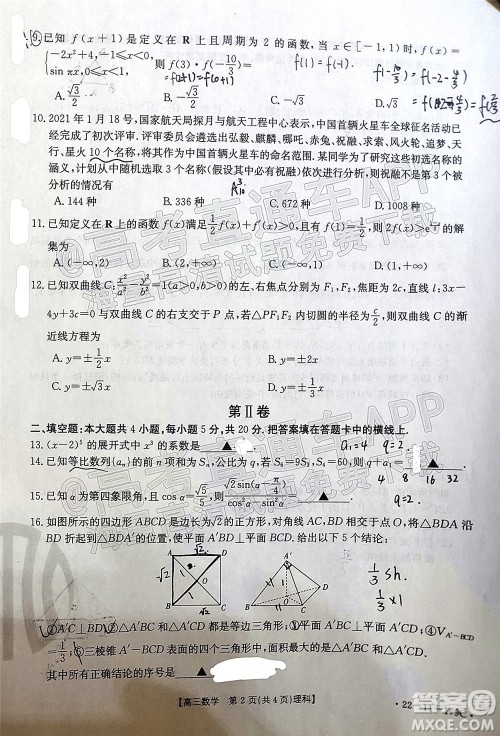 9. 已知 f(x+1) 是定义在 R 上且周期为 2 的函数, 当 x∈[-1,1) 时, f(x)=
{-2x²+4, -1≤x≤0,
sin πx, 0<x<1, 则 f(3)·f(-10/3)=
A. √3/2 B. √3 C. -√3 D.
10. 2021 年 1 月 18 号, 国家航天局探月与航天工程中心表示, 中国首辆火星车全球征名活动已
经完成初次评审. 评审委员会遴选出弘毅、麒麟、哪吒、赤兔、祝融、求索、风火轮、追梦、天
行、星火 10 个名称, 作为中国首辆火星车的命名范围. 某同学为了研究这些初选名称的涵
义, 计划从中随机选取 3 个名称(假设祝融一定入选)依次进行分析, 则选法有
A. 144 种 B. 336 种 C. 672 种 D. 1008 种
11. 已知定义在 R 上的函数 f(x) 满足
集为
A. (-∞,2) B. (2,+∞) C. (-∞,1) D. (1,+∞)
12. 已知双曲线 C: x²/a²-y²/b²=1(a>0,b>0) 的左、右焦点分别为 F₁,F₂, 焦距为 2c, 直线 l:3x-
4y+3c=0 与双曲线 C 的右支交于 P 点, 若△PF₁F₂ 的内切圆的半径为 c/2, 则双曲线 C 的渐
近线方程为
A. y=±√3x B. C. D. y=±1/3x
第Ⅱ卷
二、填空题: 本大题共 4 小题, 每小题 5 分, 共 20 分. 把答案填在答题卡中的横线上.
13. (x-2)⁵ 的展开式中 x³ 的系数是 ▲ . a₁=4 q=2
14. 已知等比数列{aₙ}的前 n 项和为 Sₙ, 若 S₆=9S₃, S₄=60, 则 q+a₁= ▲ .
4 8 16 32
15. 已知 α 为第四象限角, 且 cos α=√5/5, 则 √2sin(α-π/4)/cos α = ▲ . q=2.
16. 如图所示的四边形 ABCD 是边长为√2的正方形, 对角线 AC,BD 相交于点 O, 将△ABD 沿
BD 折起到△A′BD 的位置, 使平面 A′BD⊥平面 BCD. 给出以下 5 个结论:
√2 A D √2 1 O B C A′ D O B C
1/3 sh.
1/3 ×1
①A′C⊥BD; ②△A′BC 和△A′DC 都是等边三角形; ③平面 A′BC⊥平面 A′DC; ④V_{A′-BCD}
=1/3; ⑤三棱锥 A′-BCD 表面的四个三角形中, 面积最大的是△A′BC 和△A′DC.
其中所有正确结论的序号是 ▲
【高三数学 第 2 页(共 4 页)理科】